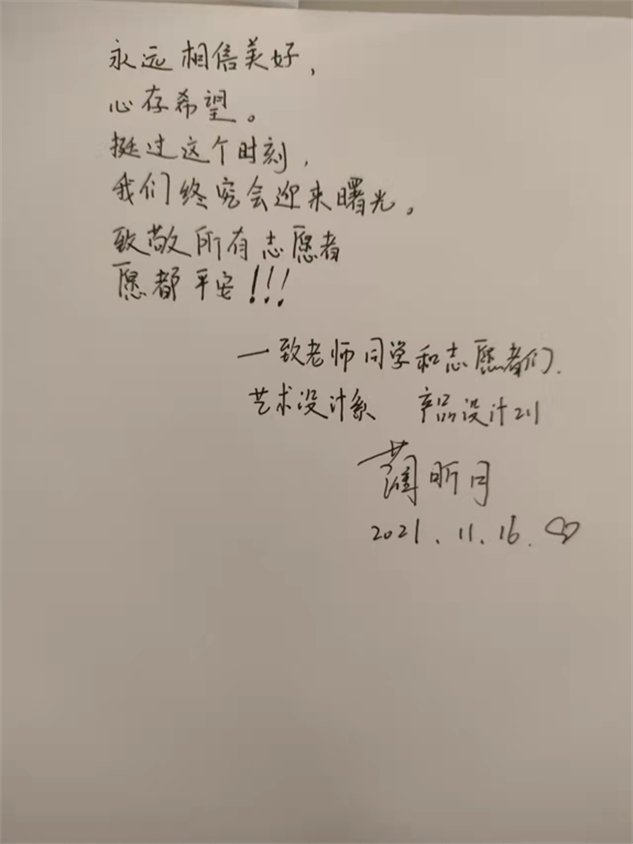 永远相信美好,
心存希望。
挺过这个时刻,
我们终究会迎来曙光。
致敬所有志愿者
愿都平安!!!
一致老师同学和志愿者们.
艺术设计系 产品设计211
蔺昕月
2021.11.16.